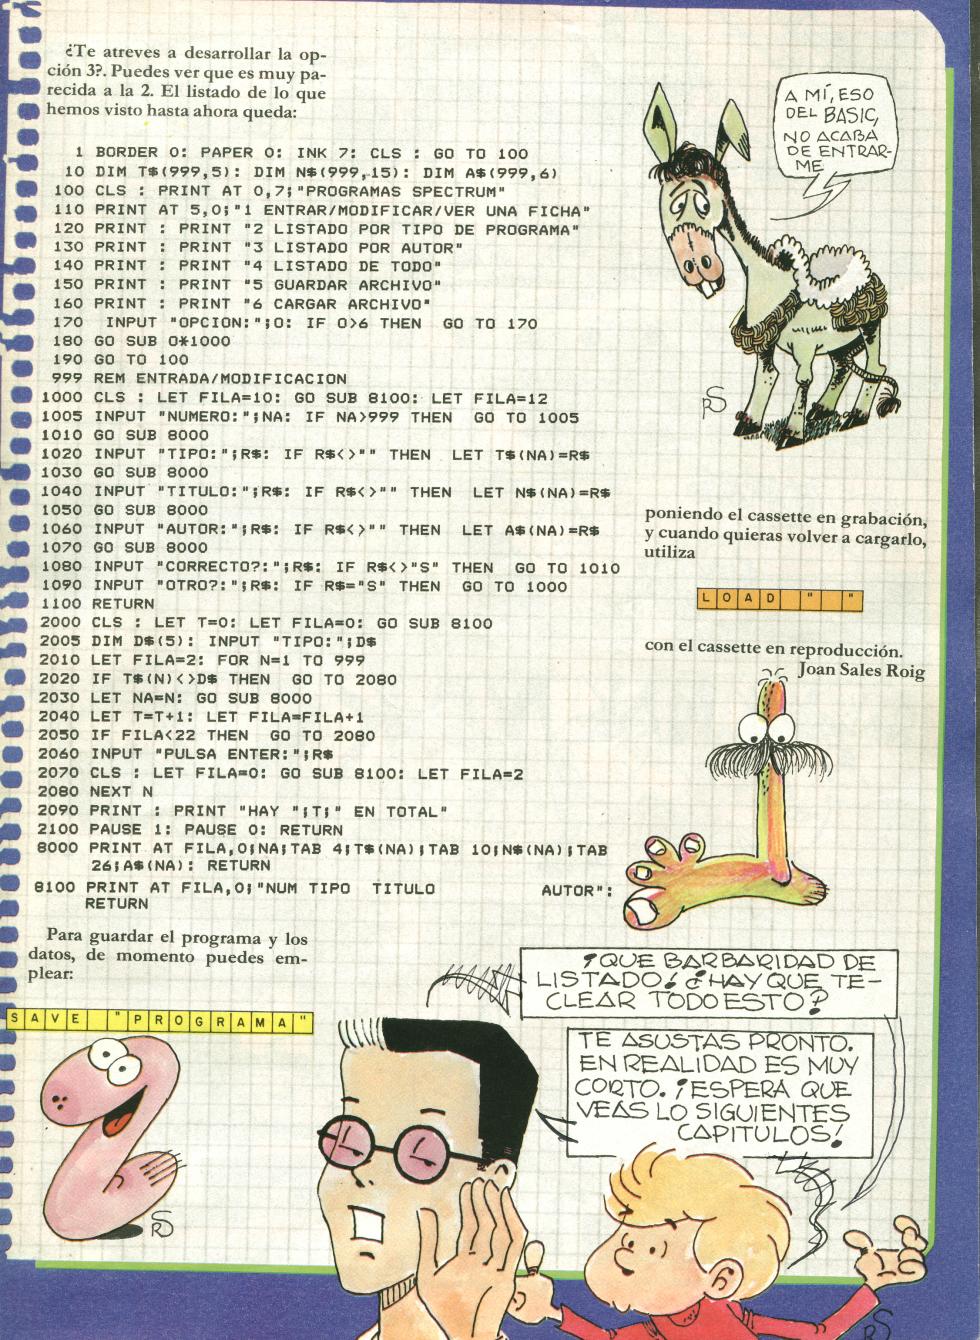 ¿Te atreves a desarrollar la op-
ción 3?. Puedes ver que es muy pa-
recida a la 2. El listado de lo que
hemos visto hasta ahora queda:
1 BORDER 0: PAPER 0: INK 7: CLS : GO TO 100
10 DIM T$(999,5): DIM N$(999,15): DIM A$(999,6)
100 CLS : PRINT AT 0,7;"PROGRAMAS SPECTRUM"
110 PRINT AT 5,0;"1 ENTRAR/MODIFICAR/VER UNA FICHA"
120 PRINT : PRINT "2 LISTADO POR TIPO DE PROGRAMA"
130 PRINT : PRINT "3 LISTADO POR AUTOR"
140 PRINT : PRINT "4 LISTADO DE TODO"
150 PRINT : PRINT "5 GUARDAR ARCHIVO"
160 PRINT : PRINT "6 CARGAR ARCHIVO"
170 INPUT "OPCION:";O: IF O>6 THEN GO TO 170
180 GO SUB O*1000
190 GO TO 100
999 REM ENTRADA/MODIFICACION
1000 CLS : LET FILA=10: GO SUB 8100: LET FILA=12
1005 INPUT "NUMERO:";NA: IF NA>999 THEN GO TO 1005
1010 GO SUB 8000
1020 INPUT "TIPO:";R$: IF R$<>"" THEN LET T$(NA)=R$
1030 GO SUB 8000
1040 INPUT "TITULO:";R$: IF R$<>"" THEN LET N$(NA)=R$
1050 GO SUB 8000
1060 INPUT "AUTOR:";R$: IF R$<>"" THEN LET A$(NA)=R$
1070 GO SUB 8000
1080 INPUT "CORRECTO?:";R$: IF R$<>"S" THEN GO TO 1010
1090 INPUT "OTRO?:";R$: IF R$="S" THEN GO TO 1000
1100 RETURN
2000 CLS : LET T=0: LET FILA=0: GO SUB 8100
2005 DIM D$(5): INPUT "TIPO:";D$
2010 LET FILA=2: FOR N=1 TO 999
2020 IF T$(N)<>D$ THEN GO TO 2080
2030 LET NA=N: GO SUB 8000
2040 LET T=T+1: LET FILA=FILA+1
2050 IF FILA<22 THEN GO TO 2080
2060 INPUT "PULSA ENTER:";R$
2070 CLS : LET FILA=0: GO SUB 8100: LET FILA=2
2080 NEXT N
2090 PRINT : PRINT "HAY ";T;" EN TOTAL"
2100 PAUSE 1: PAUSE 0: RETURN
8000 PRINT AT FILA,0;NA;TAB 4;T$(NA);TAB 10;N$(NA);TAB
26;A$(NA): RETURN
8100 PRINT AT FILA,0;"NUM TIPO TITULO AUTOR":
RETURN
Para guardar el programa y los
datos, de momento puedes em-
plear:
SAVE "PROGRAMA"
A MÍ, ESO
DEL BASIC,
NO ACABA
DE ENTRAR-
ME
RS
poniendo el cassette en grabación,
y cuando quieras volver a cargarlo,
utiliza
LOAD " "
con el cassette en reproducción.
Joan Sales Roig
¡QUE BARBARIDAD DE
LISTADO! ¿HAY QUE TE-
CLEAR TODO ESTO?
TE ASUSTAS PRONTO.
EN REALIDAD ES MUY
CORTO. ¡ESPERA QUE
VEAS LO SIGUIENTES
CAPITULOS!
RS
RS